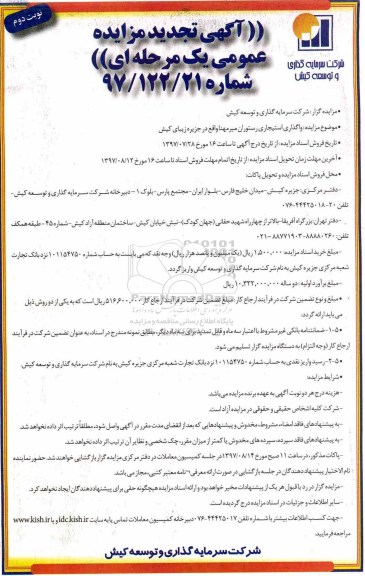 نوبت دوم
((آگهی تجدید مزایده
عمومی یک مرحله ای))
شماره ۹۷/۱۲۲/۲۱
شرکت سرمایه گذاری
و توسعه کیش
• مزایده گزار: شرکت سرمایه گذاری و توسعه کیش
• موضوع مزایده: واگذاری استیجاری رستوران میرمهنا واقع در جزیره زیبای کیش
• تاریخ فروش اسناد مزایده: از تاریخ درج آگهی تا ساعت ۱۶ مورخ ۱۳۹۷/۰۷/۲۸
• آخرین مهلت زمان تحویل اسناد مزایده: از تاریخ اتمام مهلت فروش اسناد تا ساعت ۱۶ مورخ ۱۳۹۷/۰۸/۱۲
• محل فروش اسناد مزایده و تحویل پاکات:
-دفتر مرکزی: جزیره کیش- میدان خلیج فارس- بلوار ایران- مجتمع پارس- بلوک ۱- دبیرخانه شرکت سرمایه گذاری و توسعه کیش-
تلفن: ۲۰-۰۷۶-۴۴۴۲۵۰۱۸
-دفتر تهران: بزرگراه آفریقا- بالاتر از چهارراه شهید حقانی (جهان کودک)- نبش خیابان کیش- ساختمان منطقه آزاد کیش- شماره ۴۵- طبقه همکف
تلفن: ۸۸۸۸۰۲۶۰-۸۸۷۷۱۹۰۳-۰۲۱
- مبلغ خرید اسناد مزایده: ۱,۵۰۰,۰۰۰ ریال (یک میلیون و پانصد هزار ریال) وجه نقد که می بایست به حساب شماره ۱۰۱۱۵۴۷۵۰ نزد بانک تجارت
شعبه مرکزی جزیره کیش به نام شرکت سرمایه گذاری و توسعه کیش واریز گردد.
- مبلغ برآورد اولیه: دو ساله ۱۰,۳۳۲,۰۰۰,۰۰۰ ریال
• مبلغ و نوع تضمین شرکت در فرآیند ارجاع کار: مبلغ تضمین شرکت در فرآیند ارجاع کار ۵۱۶,۶۰۰,۰۰۰ ریال است که به یکی از دو روش ذیل
می باید ارائه گردد:
۱-۵-ضمانتنامه بانکی غیر مشروط با اعتبار سه ماه و قابل تمدید برای سه ماه دیگر، مطابق نمونه مندرج در اسناد، به عنوان تضمین شرکت در فرآیند
ارجاع کار (وجه التزام) به دستگاه مزایده گزار تسلیم می شود.
۲-۵- رسید واریز نقدی به حساب شماره ۱۰۱۱۵۴۷۵۰ نزد بانک تجارت شعبه مرکزی جزیره کیش به نام شرکت سرمایه گذاری و توسعه کیش.
• شرایط مزایده:
-هزینه درج هر دو نوبت آگهی به عهده برنده مزایده می باشد.
-شرکت کلیه اشخاص حقیقی و حقوقی در مزایده آزاد است
-به پیشنهادهای فاقد امضاء، مشروط، مخدوش و پیشنهادهایی که بعد از انقضای مدت مقرر در آگهی واصل شود، مطلقاً ترتیب اثر داده نخواهد شد.
-به پیشنهادهای فاقد سپرده، سپرده های مخدوش یا کمتر از میزان مقرر، چک شخصی و نظایر آن ترتیب اثر داده نخواهد شد.
-پاکات مذکور، در ساعت ۱۱ صبح مورخ ۱۳۹۷/۰۸/۱۴ در جلسه کمیسیون معاملات در دفتر مرکزی مزایده گزار بازگشایی خواهند شد. حضور نماینده
تام الاختیار پیشنهاد دهندگان در جلسه بازگشایی در صورت ارائه معرفی نامه معتبر کتبی، مجاز می باشد.
-مزایده گزار در رد یا قبول هر یک از پیشنهادات مخیر خواهد بود و ارائه اسناد مزایده هیچگونه حقی برای پیشنهاد دهندگان ایجاد نخواهد کرد.
-سایر اطلاعات و جزئیات در اسناد مزایده درج گردیده است.
-جهت کسب اطلاعات بیشتر با شماره تلفن ۰۷۶-۴۴۴۲۵۰۱۷ دبیرخانه کمیسیون معاملات تماس یا به سایت idc.kish.ir و یا www.kish.ir
مراجعه فرمایید.
شرکت سرمایه گذاری و توسعه کیش